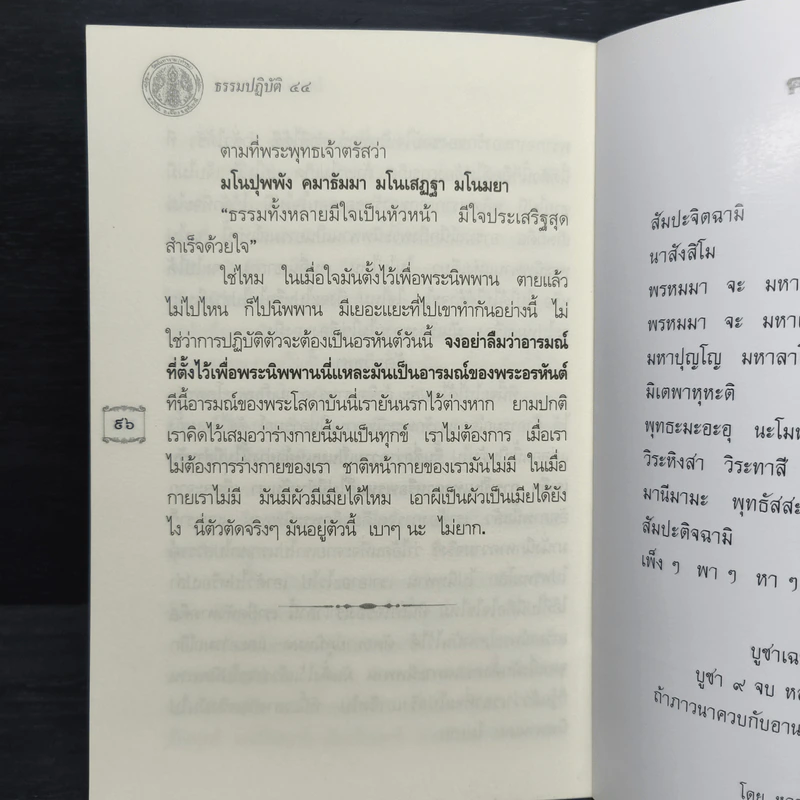 ธรรมปฏิบัติ ๔๔
ตามที่พระพุทธเจ้าตรัสว่า
มโนปุพพัง คมาธัมมา มโนเสฏฐา มโนมยา
“ธรรมทั้งหลายมีใจเป็นหัวหน้า มีใจประเสริฐสุด
สำเร็จด้วยใจ”
ใช่ไหม ในเมื่อใจมันตั้งไว้เพื่อพระนิพพาน ตายแล้ว
ไม่ไปไหน ก็ไปนิพพาน มีเยอะแยะที่ไปเขาทำกันอย่างนี้ ไม่
ใช่ว่าการปฏิบัติตัวจะต้องเป็นอรหันต์วันนี้ จงอย่าลืมว่าอารมณ์
ที่ตั้งไว้เพื่อพระนิพพานนี่แหละมันเป็นอารมณ์ของพระอรหันต์
ทีนี้อารมณ์ของพระโสดาบันนี่เรายันนรกไว้ต่างหาก ยามปกติ
เราคิดไว้เสมอว่าร่างกายนี้มันเป็นทุกข์ เราไม่ต้องการ เมื่อเรา
ไม่ต้องการร่างกายของเรา ชาติหน้ากายของเรามันไม่มี ในเมื่อ
กายเราไม่มี มันมีผัวมีเมียได้ไหม เอาผีเป็นผัวเป็นเมียได้ยัง
ไง นี่ตัวตัดจริงๆ มันอยู่ตัวนี้ เบาๆ นะ ไม่ยาก.
๕๖
สัมปะจิตฉามิ
นาสังสิโม
พรหมมา จะ มหา
พรหมมา จะ มหาเ
มหาปุญโญ มหาลาโ
มิเตพาหุหะติ
พุทธะมะอะอุ นะโม
วิระหิงสา วิระทาสี
มานีมามะ พุทธัสสะ
สัมปะติจฉามิ
เพ็ง ๆ พา ๆ หา ๆ
บูชาเ
บูชา ๙ จบ
ถ้าภาวนาควบกับอาน
โดย